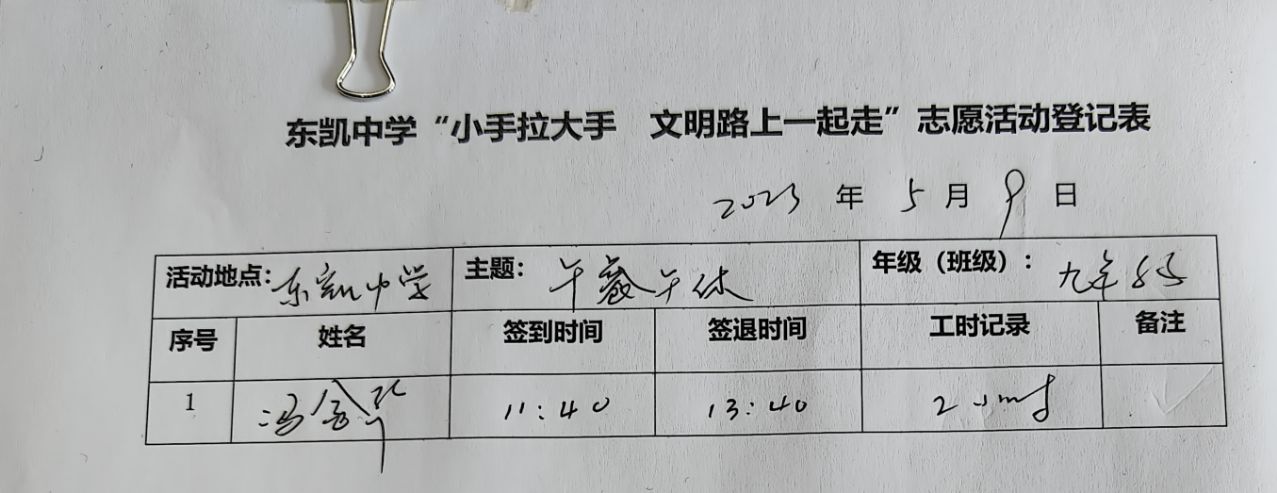 东凯中学“小手拉大手 文明路上一起走”志愿活动登记表
2023 年 5 月 9 日
活动地点：东凯中学 主题：午餐午休 年级（班级）：九年
序号 姓名 签到时间 签退时间 工时记录 备注
1 冯 11:40 13:40 2